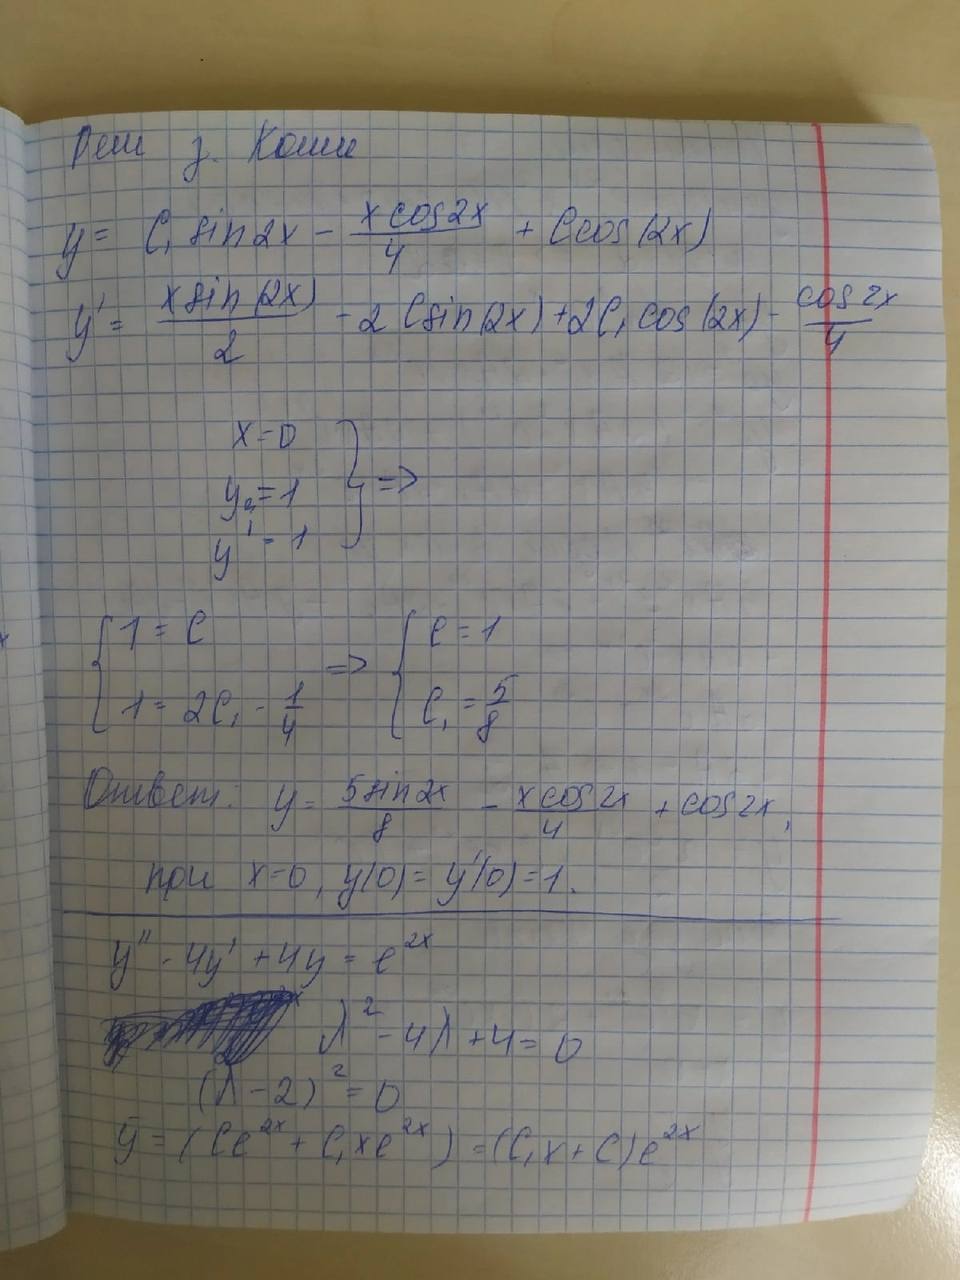 Реш з. Коши
y = C₁ sin 2x - x cos 2x / 4 + C cos (2x)
y' = x sin (2x) / 2 - 2 C sin (2x) + 2C₁ cos (2x) - cos 2x / 4
x = 0
y = 1
y' = 1
} =>
{ 1 = C => { C = 1
1 = 2C₁ - 1/4 C₁ = 5/8
Ответ: y = 5 sin 2x / 8 - x cos 2x / 4 + cos 2x,
при x=0, y(0) = y'(0) = 1.
y'' - 4y' + 4y = e^2x
λ² - 4λ + 4 = 0
(λ - 2)² = 0
ȳ = (Ce^2x + C₁xe^2x) = (C₁x + C)e^2x